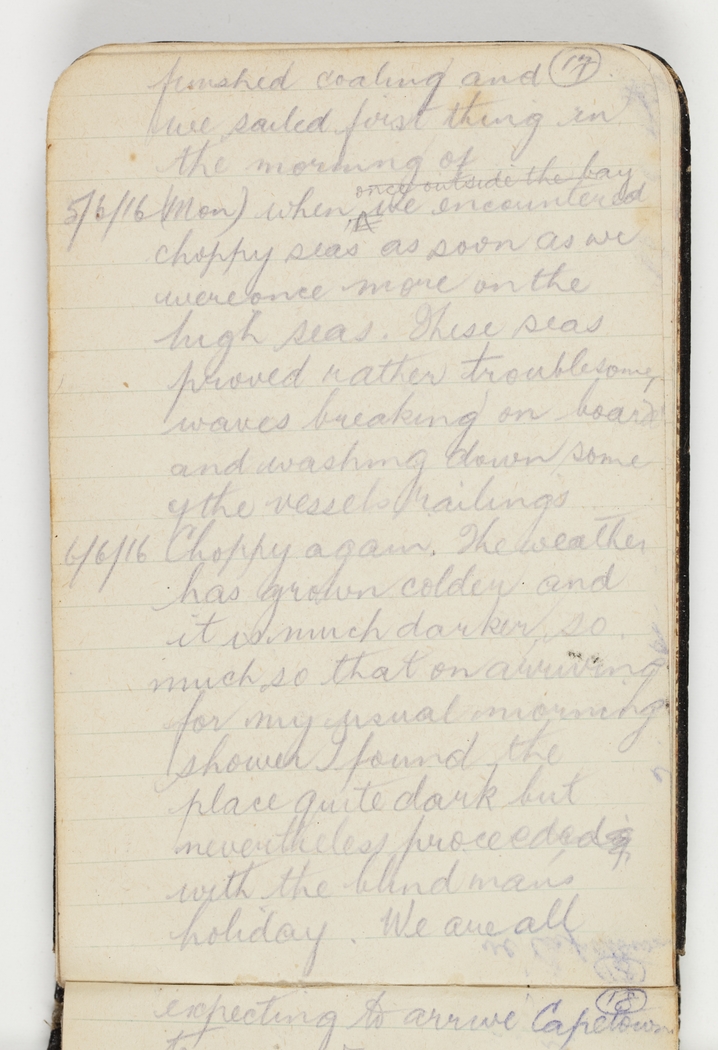 17
finished coaling and
we sailed first thing in
the morning of
once outside the bay
5/6/16 (Mon) when we encountered
choppy seas as soon as we
were once more on the
high seas. These seas
proved rather troublesome,
waves breaking on board
and washing down some
of the vessels railings
6/6/16 Choppy again. The weather
has grown colder and
it is much darker, so
much so that on arriving
for my usual morning
shower I found the
place quite dark but
nevertheless proceeded
with the blind man's
holiday. We are all
18
expecting to arrive Capetown